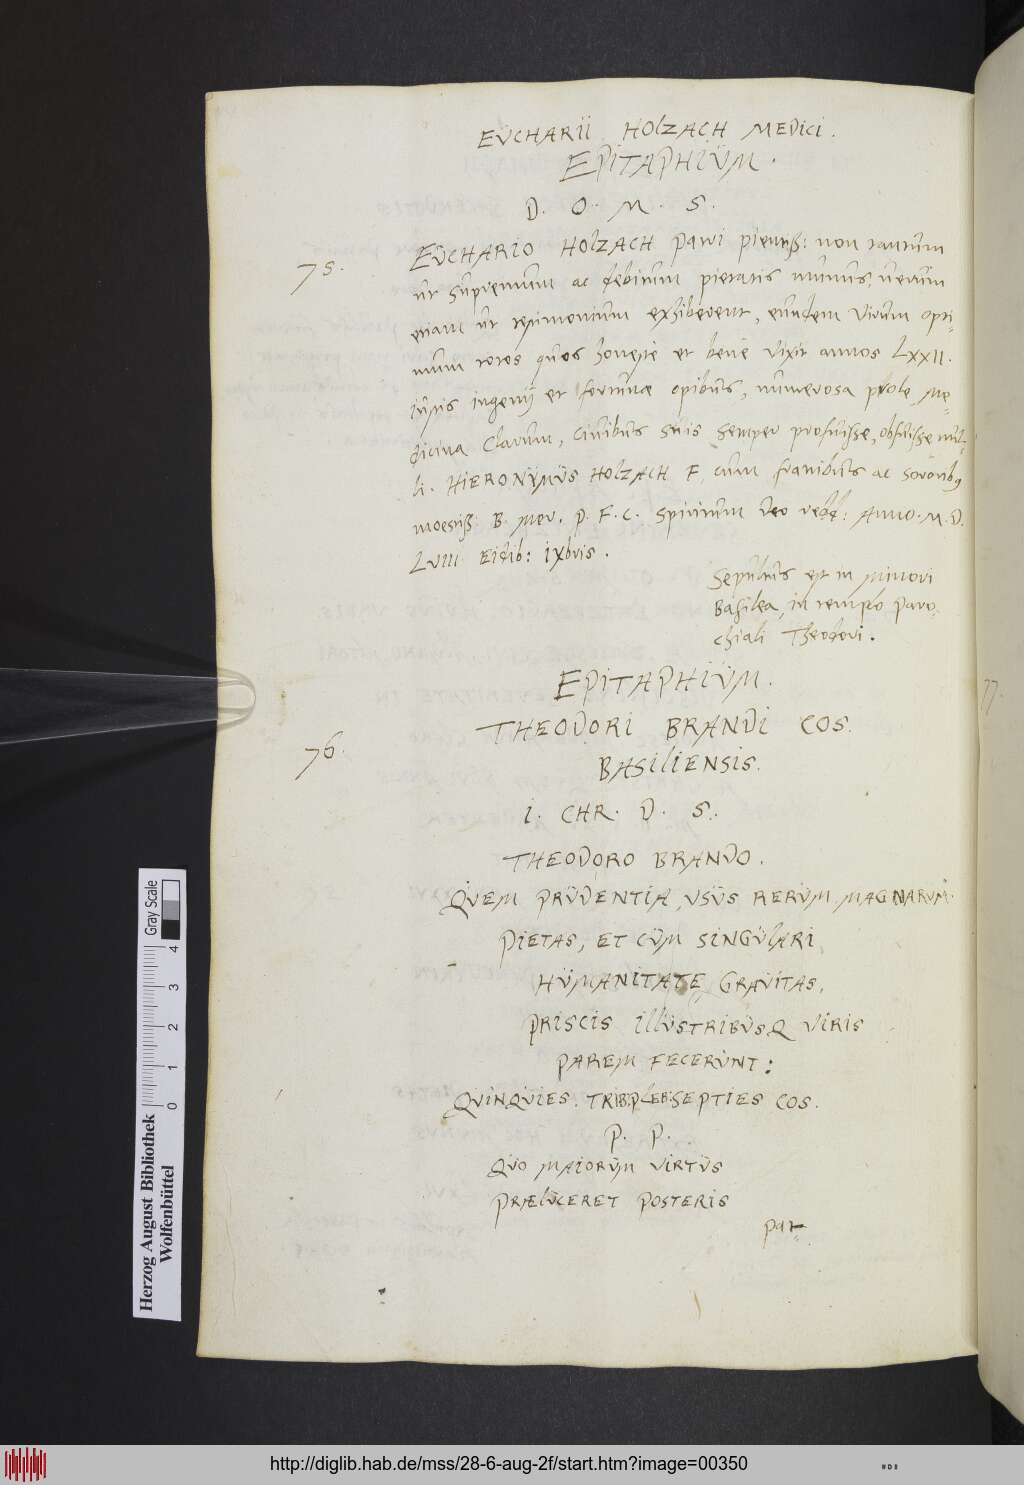 EUCHARII HOLZACH MEDICI.
EPITAPHIUM.
D. O. M. S.
75.
EUCHARIO HOLZACH patri pientiß: non tantum
ut supremum ac debitum pietatis munus, verum
etiam ut testimonium exhiberent, eundem virum opti-
mum totos quos honestè et benè vixit annos LXXII.
iustis ingenij et fortunae opibus, numerosa prole, me-
dicina clarum, civibus suis semper profuisse, obfuisse nul-
li. HIERONYMUS HOLZACH F. cum fratribus ac sororibus
moestiß: B. mer. P. F. C. Spiritum deo redd: Anno. M. D.
LVIII Eidib: IXbris.
Sepultus est in minori
Basilea, in templo paro-
chiali Theodori.
EPITAPHIUM.
76.
THEODORI BRANDI COS.
BASILIENSIS.
I. CHR. D. S.
THEODORO BRANDO.
QUEM PRUDENTIA, USUS RERUM MAGNARUM.
PIETAS, ET CUM SINGULARI
HUMANITATE GRAVITAS,
PRISCIS ILLUSTRIBUSQ VIRIS
PAREM FECERUNT:
QUINQUIES. TRIB:PLEB:SEPTIES COS.
P. P.
QUO MAIORUM VIRTUS
PRÆLUCERET POSTERIS
par-
77.
Herzog August Bibliothek
Wolfenbüttel
0 1 2 3 4
Gray Scale
http://diglib.hab.de/mss/28-6-aug-2f/start.htm?image=00350